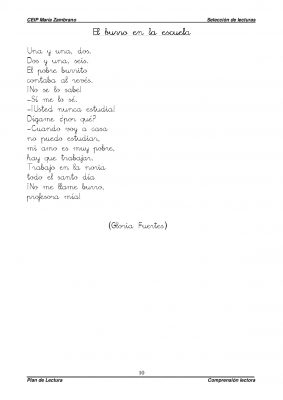 CEIP María Zambrano Selección de lecturas
El burro en la escuela
Una y una, dos.
Dos y una, seis.
El pobre burrito
contaba al revés.
¡No se lo sabe!
-Sí me lo sé.
-¡Usted nunca estudia!
Dígame ¿por qué?
-Cuando voy a casa
no puedo estudiar,
mi amo es muy pobre,
hay que trabajar.
Trabajo en la noria
todo el santo día.
¡No me llame burro,
profesora mía!
(Gloria Fuertes)
10
Plan de Lectura Comprensión lectora